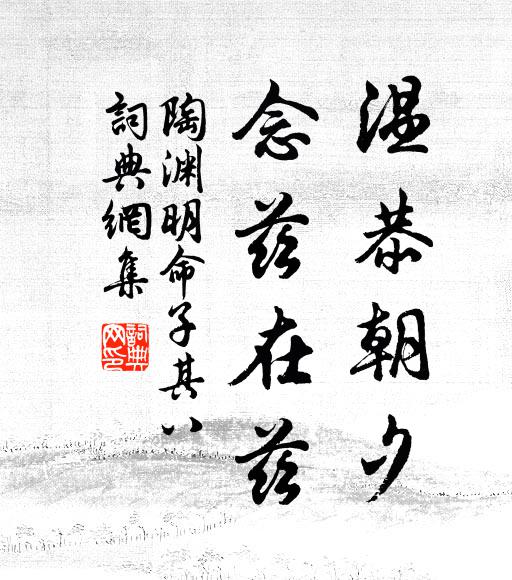 温恭朝夕
念茲在茲
陶渊明命子其八
詞典網集
詞典網印